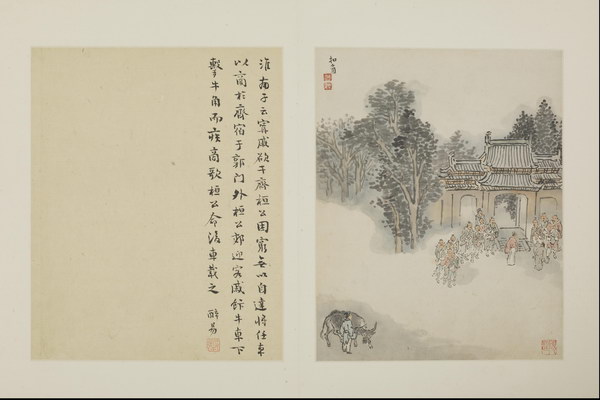 淮南子云甯戚欲干齊桓公困窮無以自達將任車
以商於齊宿于郭門外桓公郊迎客戚飯牛車下
擊牛角而疾商歌桓公命後車載之